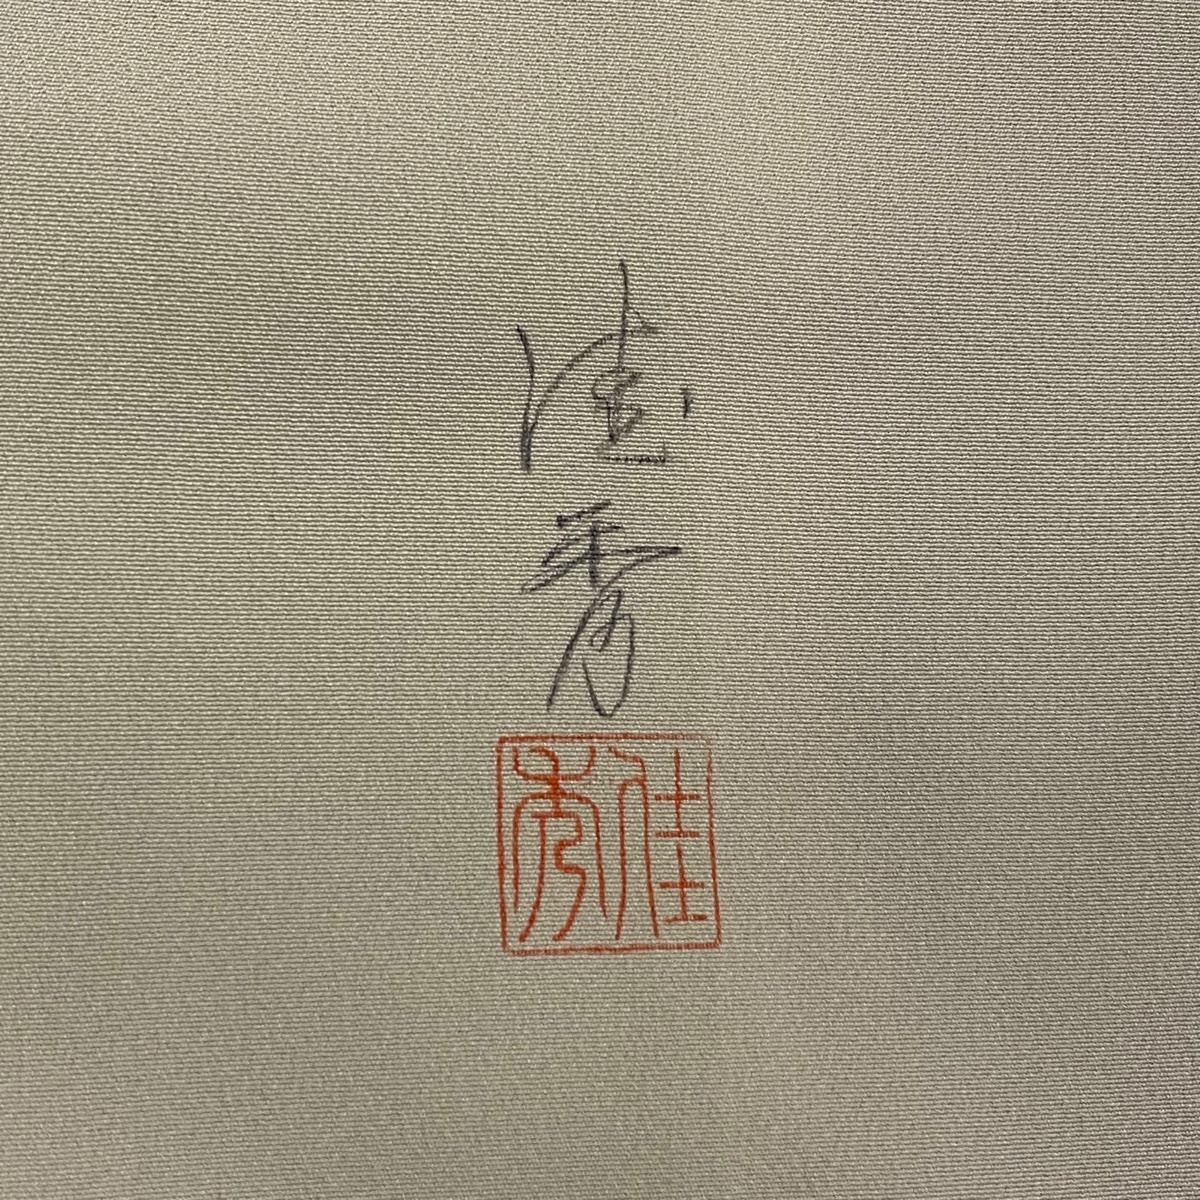 佳秀
佳秀